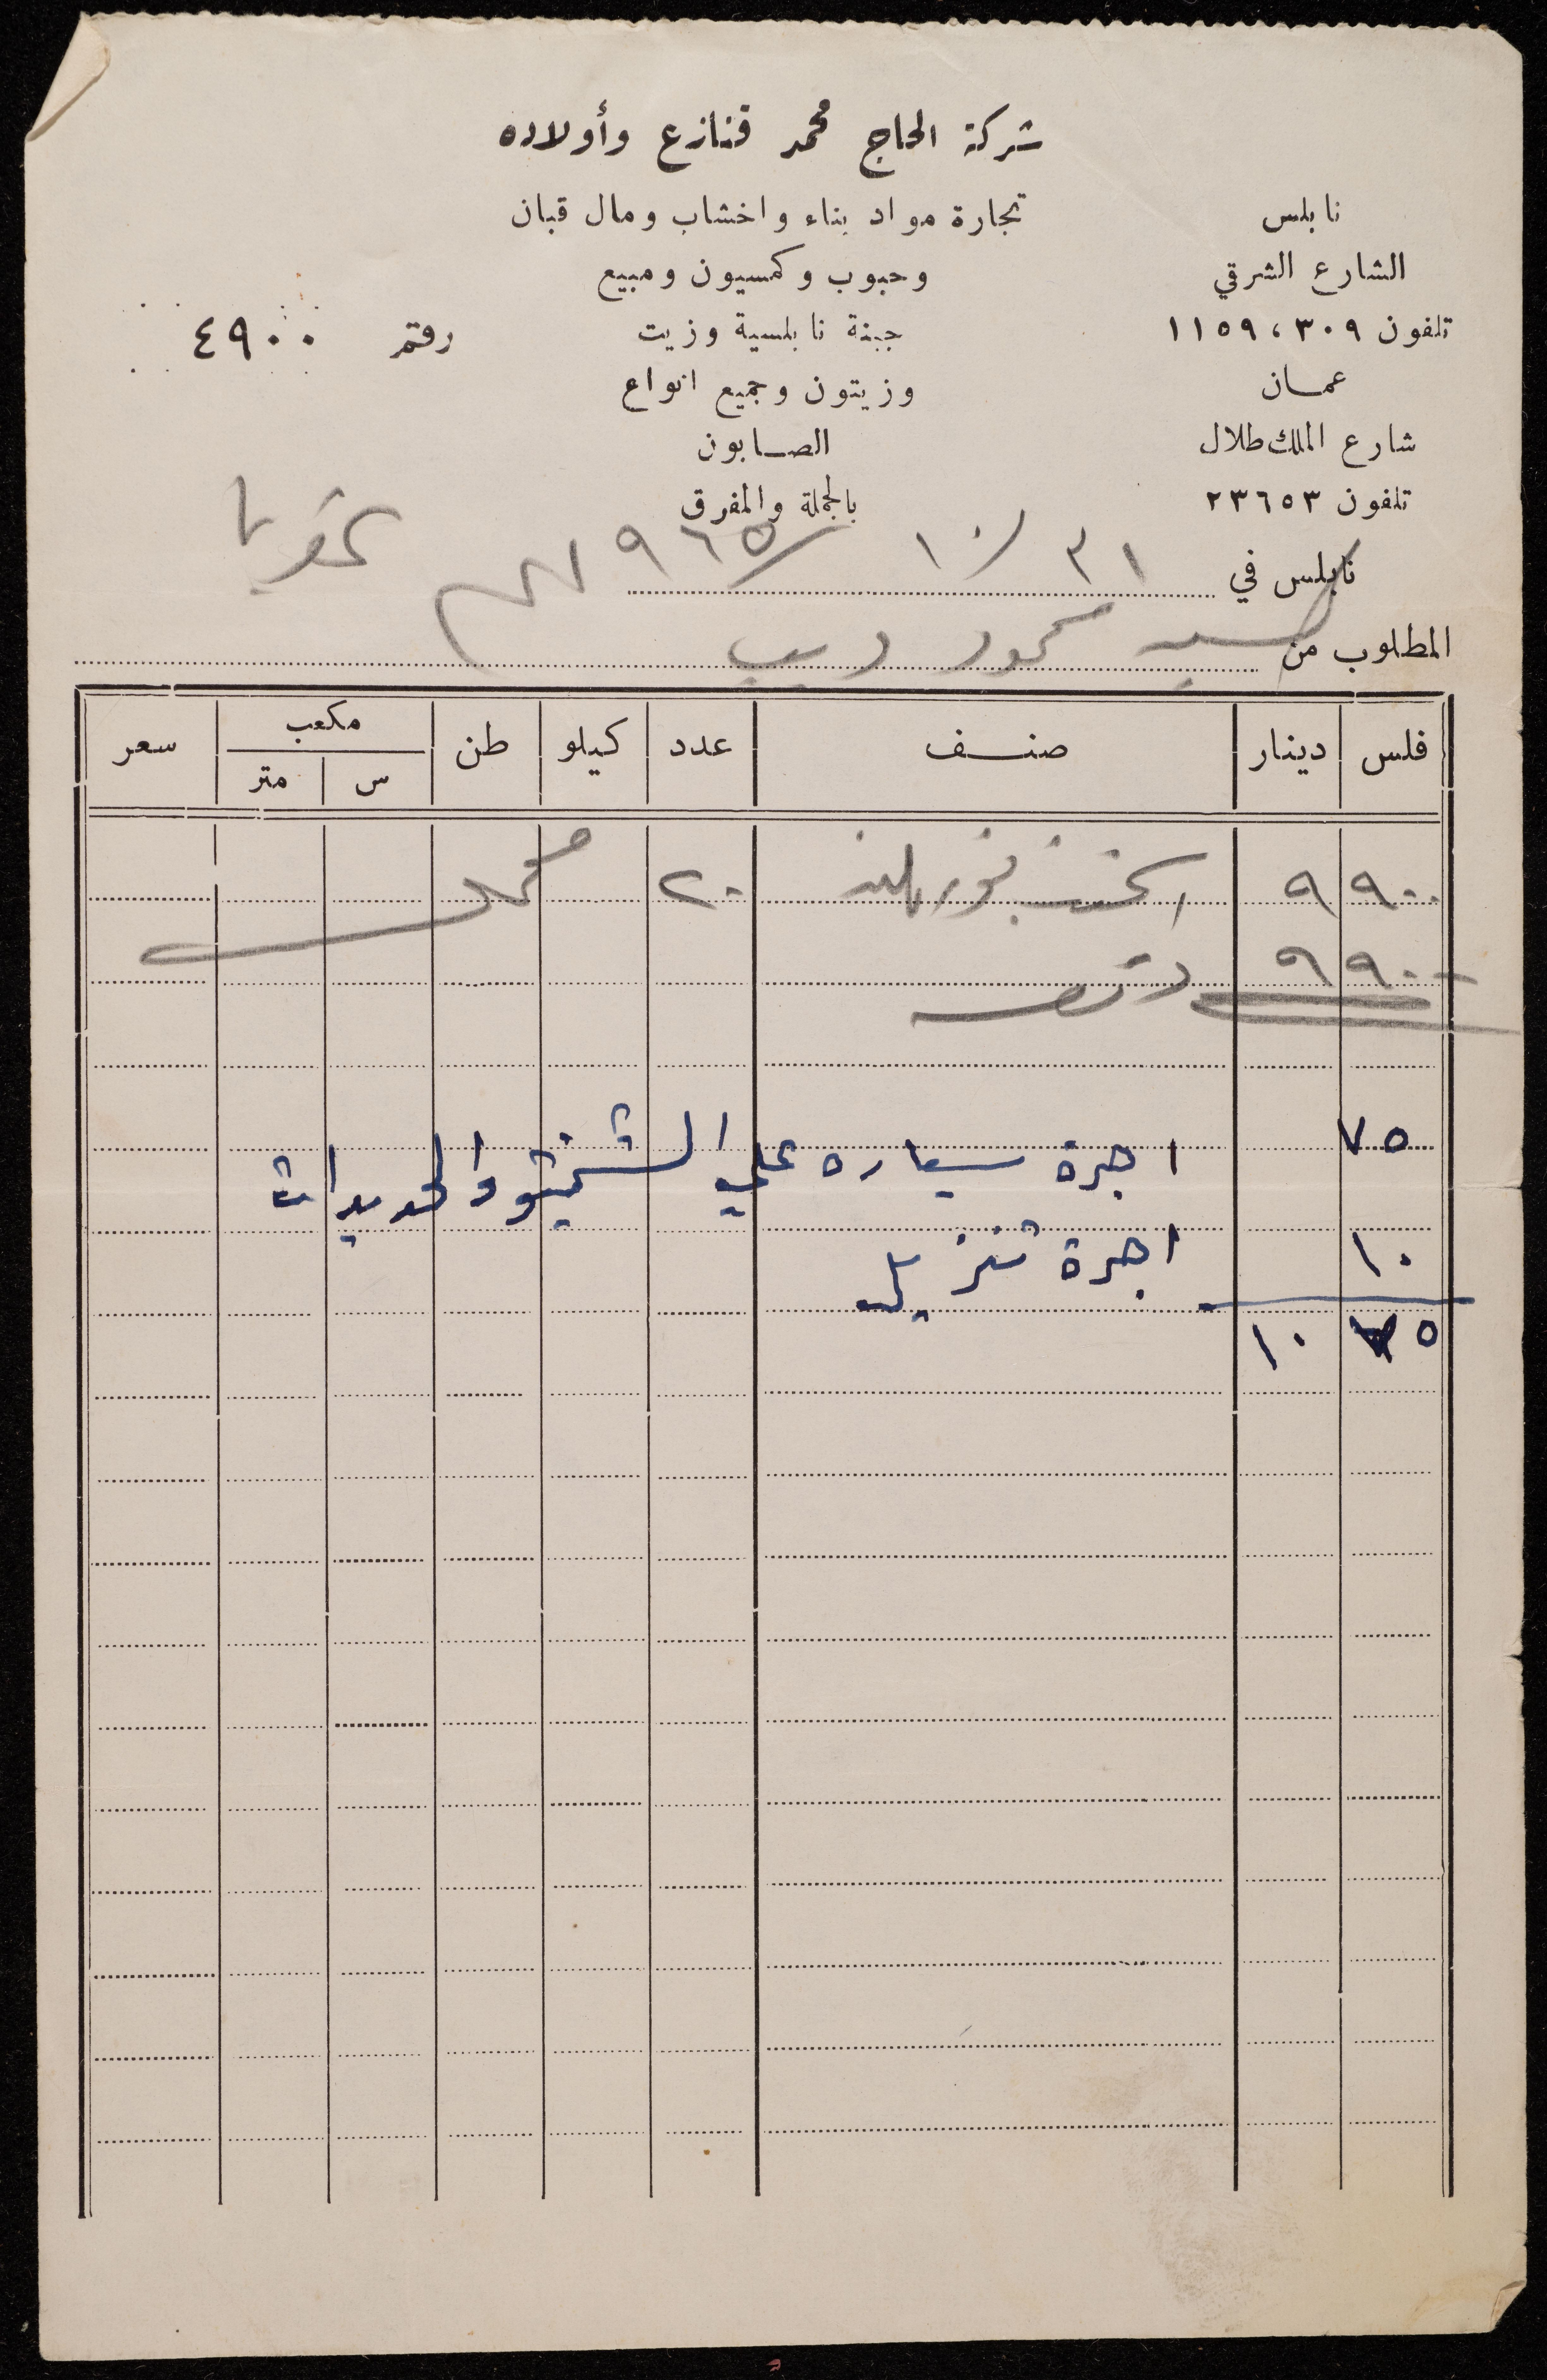 شركة الحاج محمد قنازع وأولاده
تجارة مواد بناء واخشاب ومال قبان
وحبوب وكمسيون ومبيع
جبنة نابلسية وزيت
وزيتون وجميع انواع
الصابون
بالجملة والمفرق
نابلس
الشارع الشرقي
تلفون ٣٠٩ ، ١١٥٩
عمان
شارع الملك طلال
تلفون ٢٣٦٥٣
رقم ٤٩٠٠
نابلس في ٣١/١٠/٩٦٥
المطلوب من السيد محمود ديب
فلس دينار صنف عدد كيلو طن مكعب سعر
س متر
٩٠٠ ٩ ٢٠
٩٠٠ ٩
٧٥ اجرة سياره على الشمينتو والحديدات
١٠ اجرة تنزيل
٧٥ ١٠